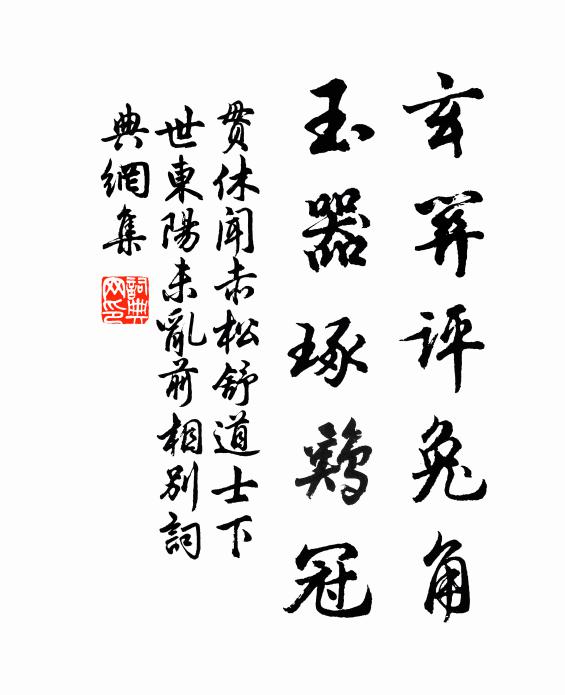 玄關評兔角
玉器琢鷄冠
貫休聞赤松舒道士下
世東陽未亂前相別詞
典網集
詞典
网印